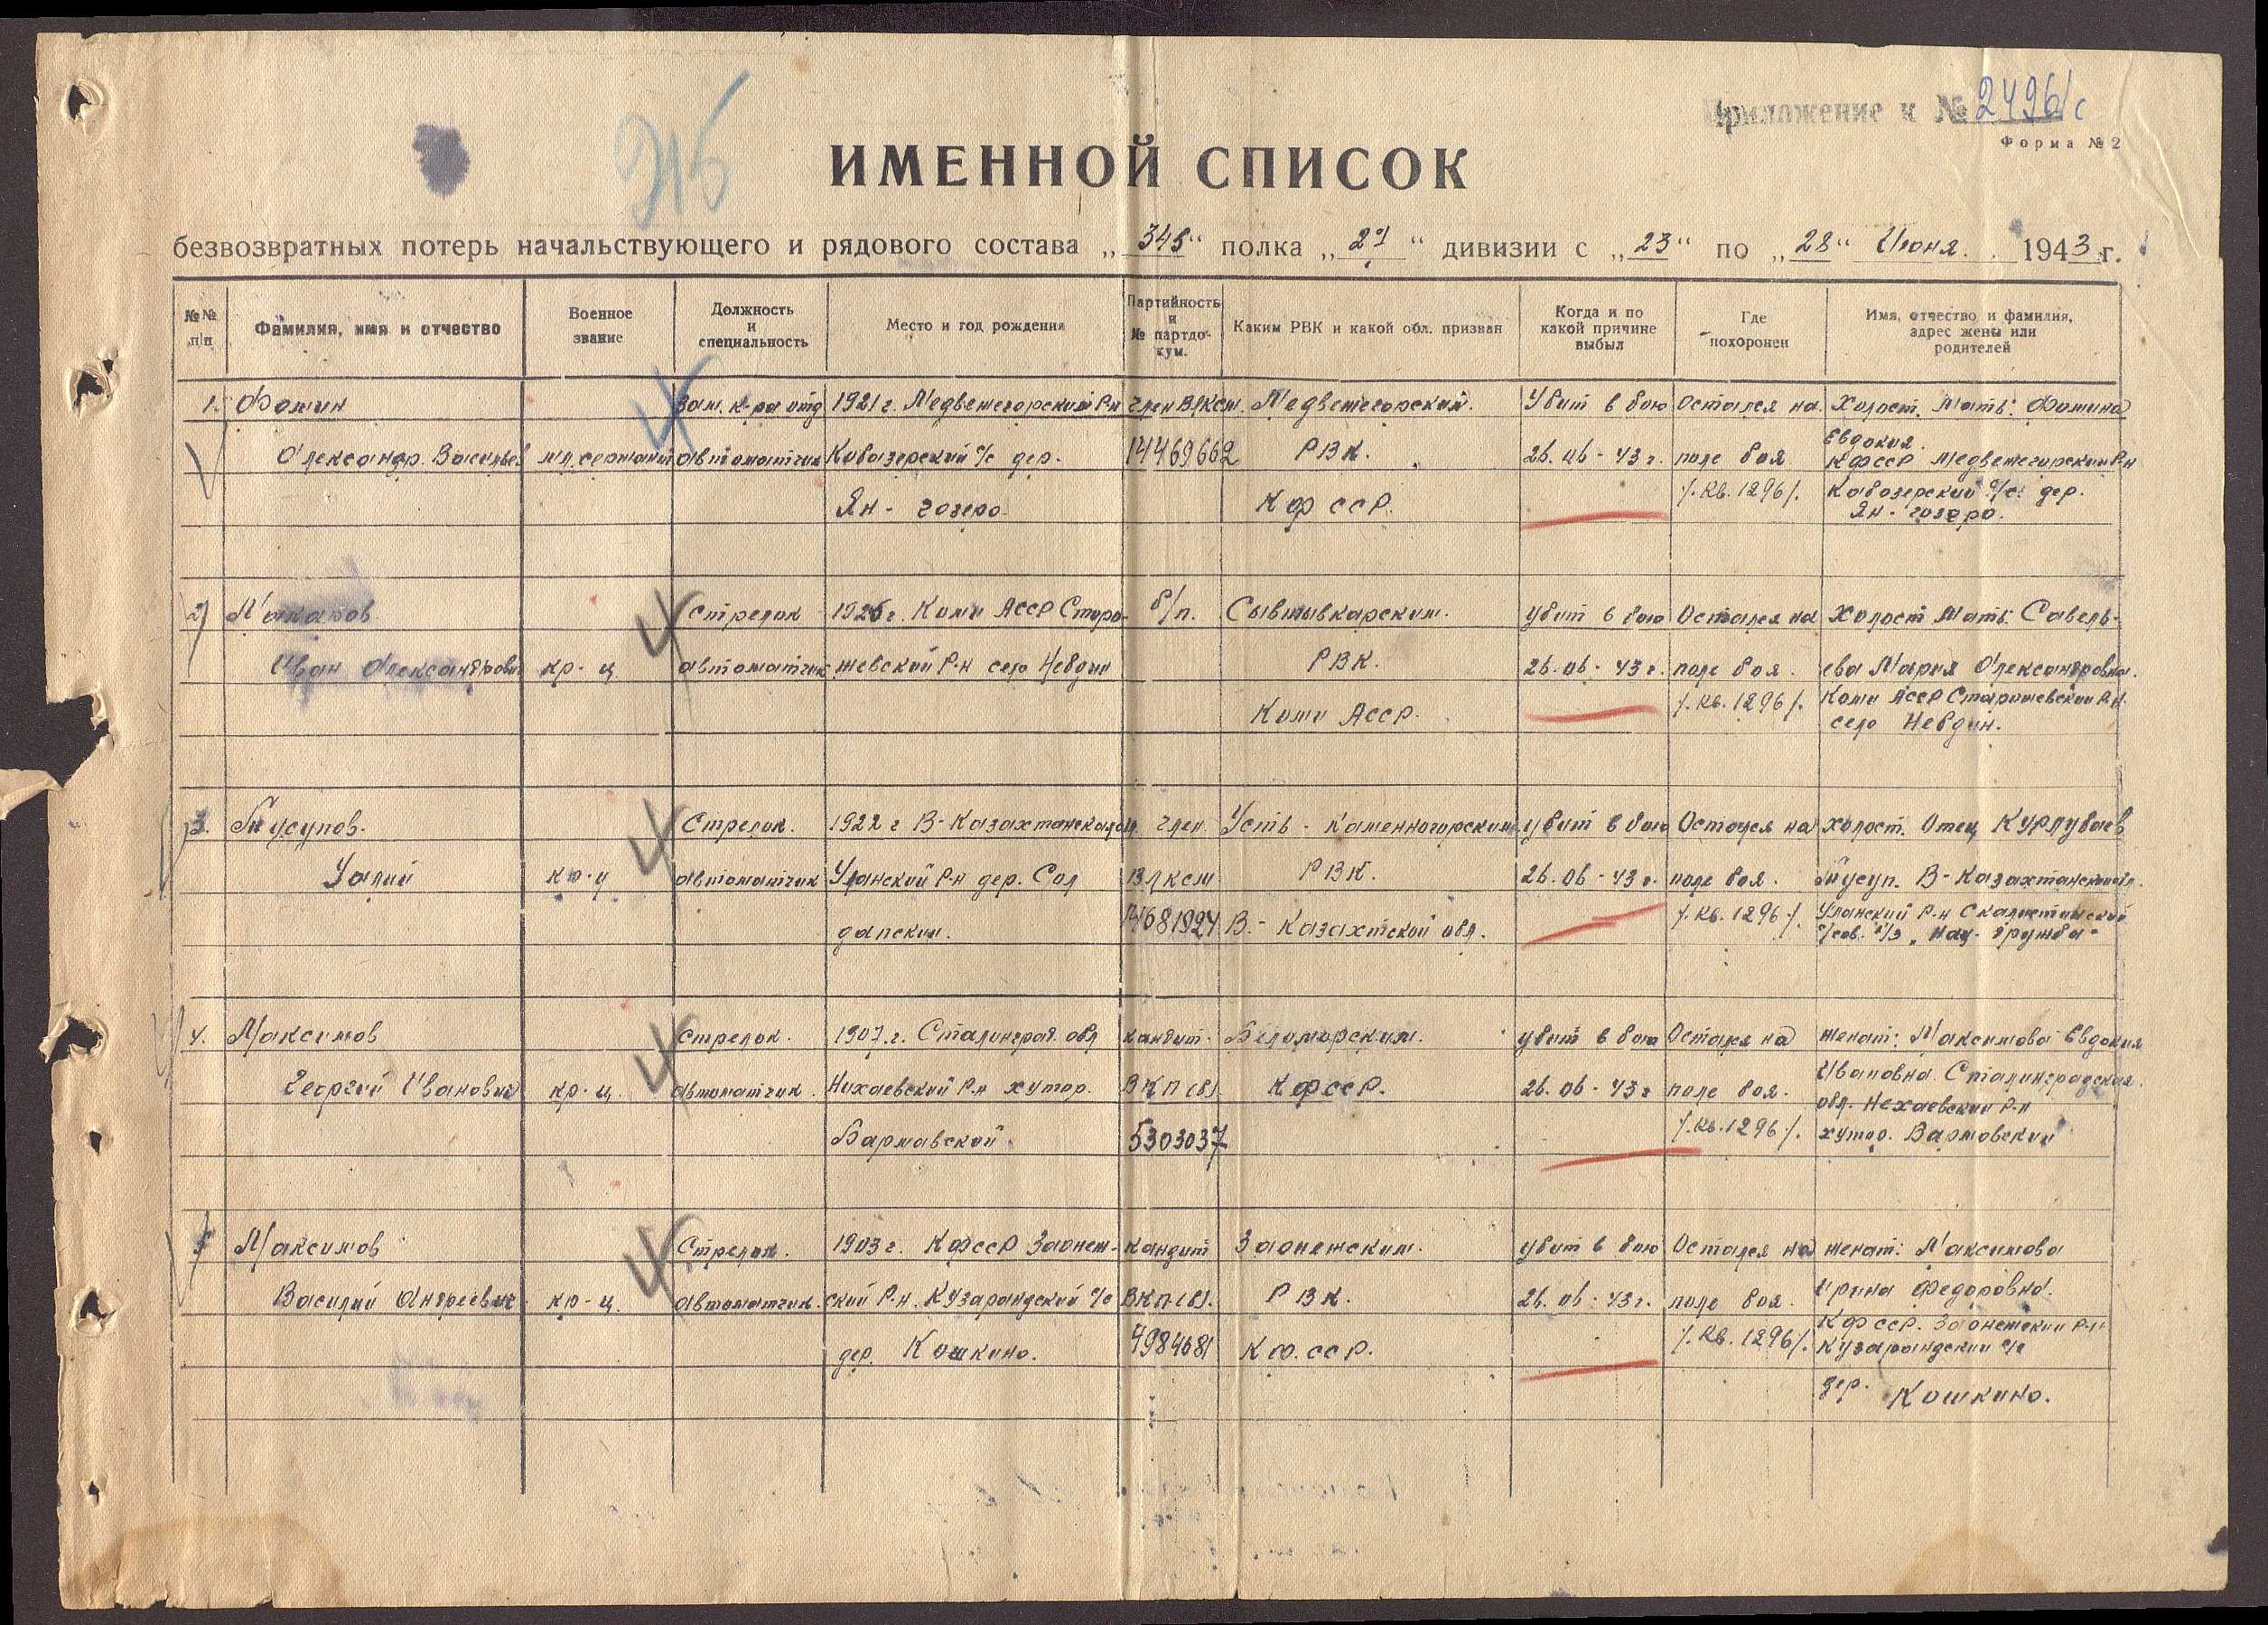 Приложение к № 2496/с
Форма № 2
ИМЕННОЙ СПИСОК
безвозвратных потерь начальствующего и рядового состава „ 345 “ полка „ 27 “ дивизии с „ 23 “ по „ 28 “ Июня 1943 г.
№№ п/п
Фамилия, имя и отчество
Военное звание
Должность и специальность
Место и год рождения
Партийность и № партдокум.
Каким РВК и какой обл. призван
Когда и по какой причине выбыл
Где похоронен
Имя, отчество и фамилия, адрес жены или родителей
1. Фомин зам. к-ра отд 1921 г. Медвежегорский Р-н член ВЛКСМ. Медвежегорским. Убит в бою Остался на Холост. Мать: Фомина
Александр. Васильев мл. сержант автоматчик с/с дер. 14469662 РВК. 26.06-43 г. поле боя Евдокия
КФССР Медвежегорский Р-н
Ян-гозеро. КФ ССР. /.Кв. 1296/. с/с. дер.
Ян-гозеро.
2 Макаров Стрелок 1925 г. Коми АССР Сторо- б/п. Сывтывкарским. убит в бою Остался на Холост Мать: Савель-
Иван Александрович кр-ц автоматчик жевский Р-н село Невдин РВК. 26.06-43 г. поле боя. ева Мария Александровна.
Коми АССР. /.Кв. 1296/. Коми АССР Р-н.
село Невдин.
3. Стрелок. 1922 г В-Казахтанская обл член Усть-Каменногорским убит в бою Остался на холост. Отец
Уалий кр-ц автоматчик Уланский Р-н дер. Сол ВЛКСМ РВК. 26.06-43 г. поле боя. В-Казахтанской обл.
дапский. 14681924 В.-Казахтской обл. /.Кв. 1296/. Уланский Р-н
дружба
4. Максимов Стрелок. 1907 г. Сталинград. обл кандит. Беломорским. убит в бою Остался на женат: Максимова Евдокия
Георгий Иванович кр-ц. автоматчик. Нихаевский Р-н хутор. ВКП(б) КФССР. 26.06-43 г поле боя. Ивановна. Сталинградская.
обл. Нехаевский Р-н
Бармавской. 5303037 /.Кв. 1296/. хутор.
5 Максимов Стрелок. 1903 г. КФССР Заонеж- кандит Заонежским. убит в бою Остался на женат: Максимова
Василий Андреевич кр-ц. автоматчик. ский Р-н. Кузарандский с/с ВКП(б). РВК. 26.06-43 г. поле боя. Ирина Федоровна.
КФССР. Заонежский Р-н
дер. Кошкино. 4984681 КФ.ССР. /.Кв. 1296/. Кузарандский с/с
дер. Кошкино.